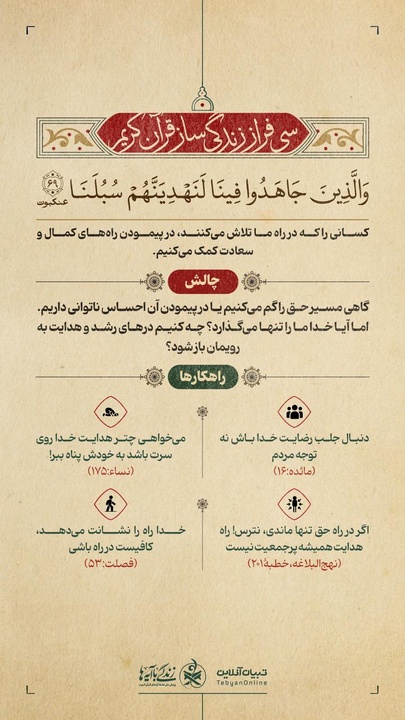 سی فراز زندگی‌ساز قرآن کریم
وَالَّذِينَ جَاهَدُوا فِينَا لَنَهْدِيَنَّهُمْ سُبُلَنَا
۶۹
عنکبوت
کسانی را که در راه ما تلاش می‌کنند، در پیمودن راه‌های کمال و
سعادت کمک می‌کنیم.
چالش
گاهی مسیر حق را گم می‌کنیم یا در پیمودن آن احساس ناتوانی داریم.
اما آیا خدا ما را تنها می‌گذارد؟ چه کنیم درهای رشد و هدایت به
رویمان باز شود؟
راهکارها
دنبال جلب رضایت خدا باش نه
توجه مردم
(مائده:۱۶)
می‌خواهی چتر هدایت خدا روی
سرت باشد به خودش پناه ببر!
(نساء:۱۷۵)
اگر در راه حق تنها ماندی، نترس! راه
هدایت همیشه پرجمعیت نیست
(نهج‌البلاغه، خطبهٔ۲۰۱)
خدا راه را نشانت می‌دهد،
کافیست در راه باشی
(فصلت:۵۳)
تبیان آنلاین
TebyanOnline
زندگی با آیه‌ها